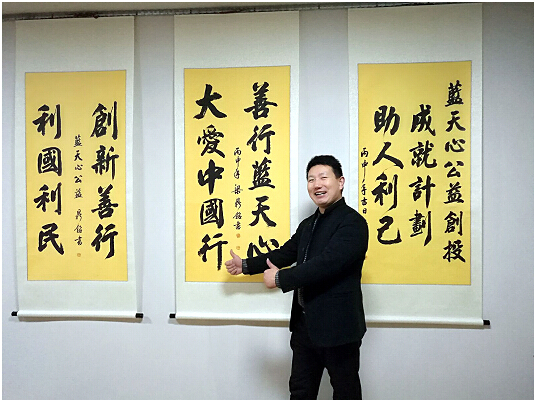 藍天心公益創投
成就計劃
助人利己
丙申年
善行藍天心
丙申年
大愛中國行
創新善行
藍天心公益
利國利民